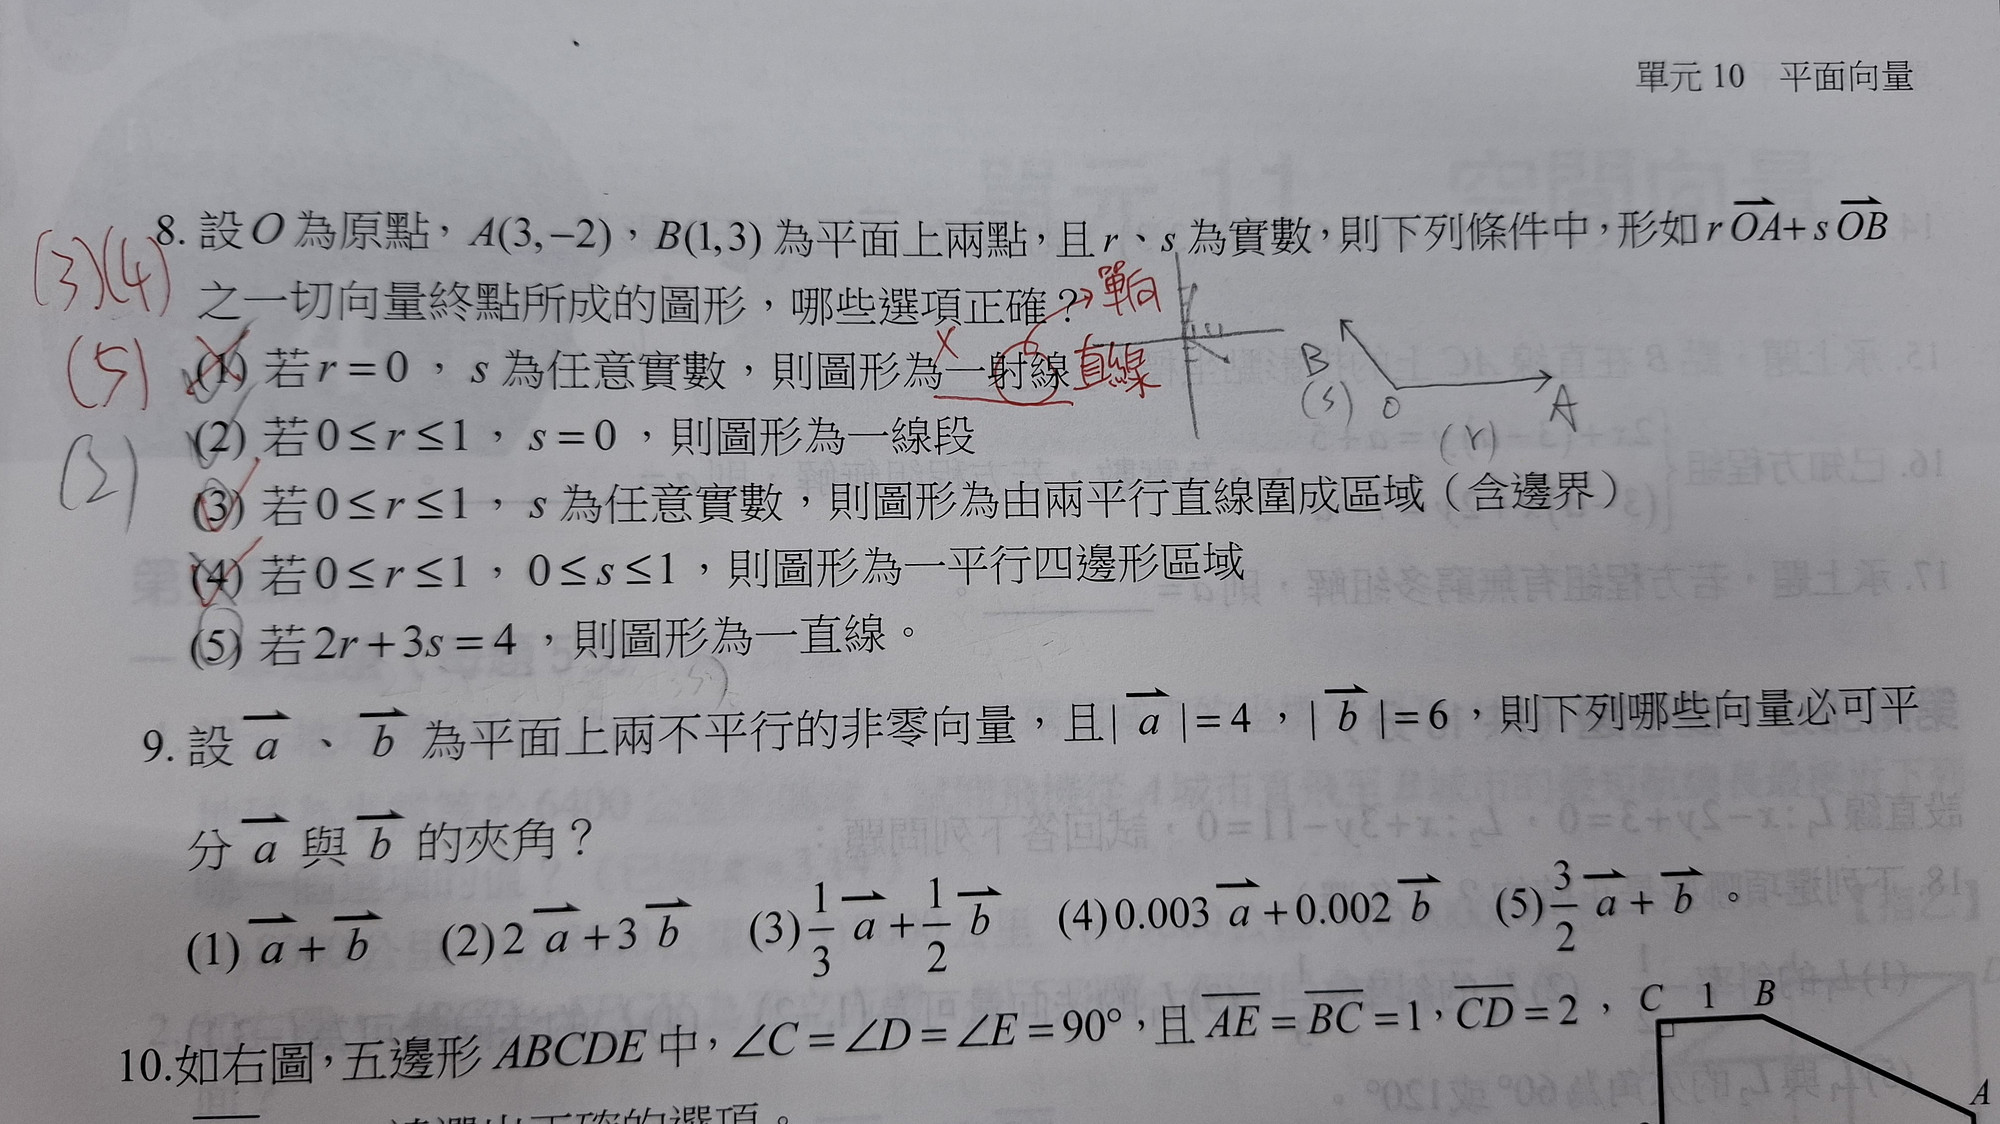 單元 10 平面向量
8. 設 O 為原點，A(3,−2)，B(1,3) 為平面上兩點，且 r、s 為實數，則下列條件中，形如 r\overrightarrow{OA}+s\overrightarrow{OB}
(3)(4) 之一切向量終點所成的圖形，哪些選項正確？→單向
(5) (1) 若 r = 0，s 為任意實數，則圖形為一射線 直線
B (s) O (r) A
(2) (2) 若 0≤r≤1，s = 0，則圖形為一線段
(3) 若 0≤r≤1，s 為任意實數，則圖形為由兩平行直線圍成區域（含邊界）
(4) 若 0≤r≤1，0≤s≤1，則圖形為一平行四邊形區域
(5) 若 2r+3s=4，則圖形為一直線。
9. 設 \overrightarrow{a}、\overrightarrow{b} 為平面上兩不平行的非零向量，且|\overrightarrow{a}|=4，|\overrightarrow{b}|=6，則下列哪些向量必可平
分 \overrightarrow{a} 與 \overrightarrow{b} 的夾角？
(1) \overrightarrow{a}+\overrightarrow{b} (2) 2\overrightarrow{a}+3\overrightarrow{b} (3) \frac{1}{3}\overrightarrow{a}+\frac{1}{2}\overrightarrow{b} (4) 0.003\overrightarrow{a}+0.002\overrightarrow{b} (5) \frac{3}{2}\overrightarrow{a}+\overrightarrow{b}。
10. 如右圖，五邊形 ABCDE 中，∠C=∠D=∠E=90°，且 \overline{AE}=\overline{BC}=1，\overline{CD}=2，
C 1 B
A